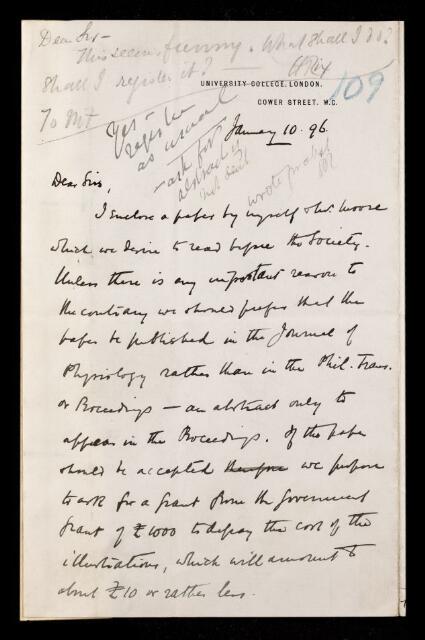 Dear Sir -
This seems funny. What shall I do?
Shall I register it?
UNIVERSITY COLLEGE, LONDON.
109
GOWER STREET, W.C.
To MF
Yes -
register
as usual
- ask for
abstract if
not sent
wrote
January 10. 96.
Dear Sirs,
I enclose a paper by myself & Dr. Moore
which we desire to read before the Society.
Unless there is any important reason to
the contrary we should prefer that the
paper be published in the Journal of
Physiology rather than in the Phil. Trans.
or Proceedings — an abstract only to
appear in the Proceedings. If the paper
should be accepted therefore we propose
to ask for a grant from the Government
Grant of £1000 to defray the cost of the
illustrations, which will amount to
about £10 or rather less.